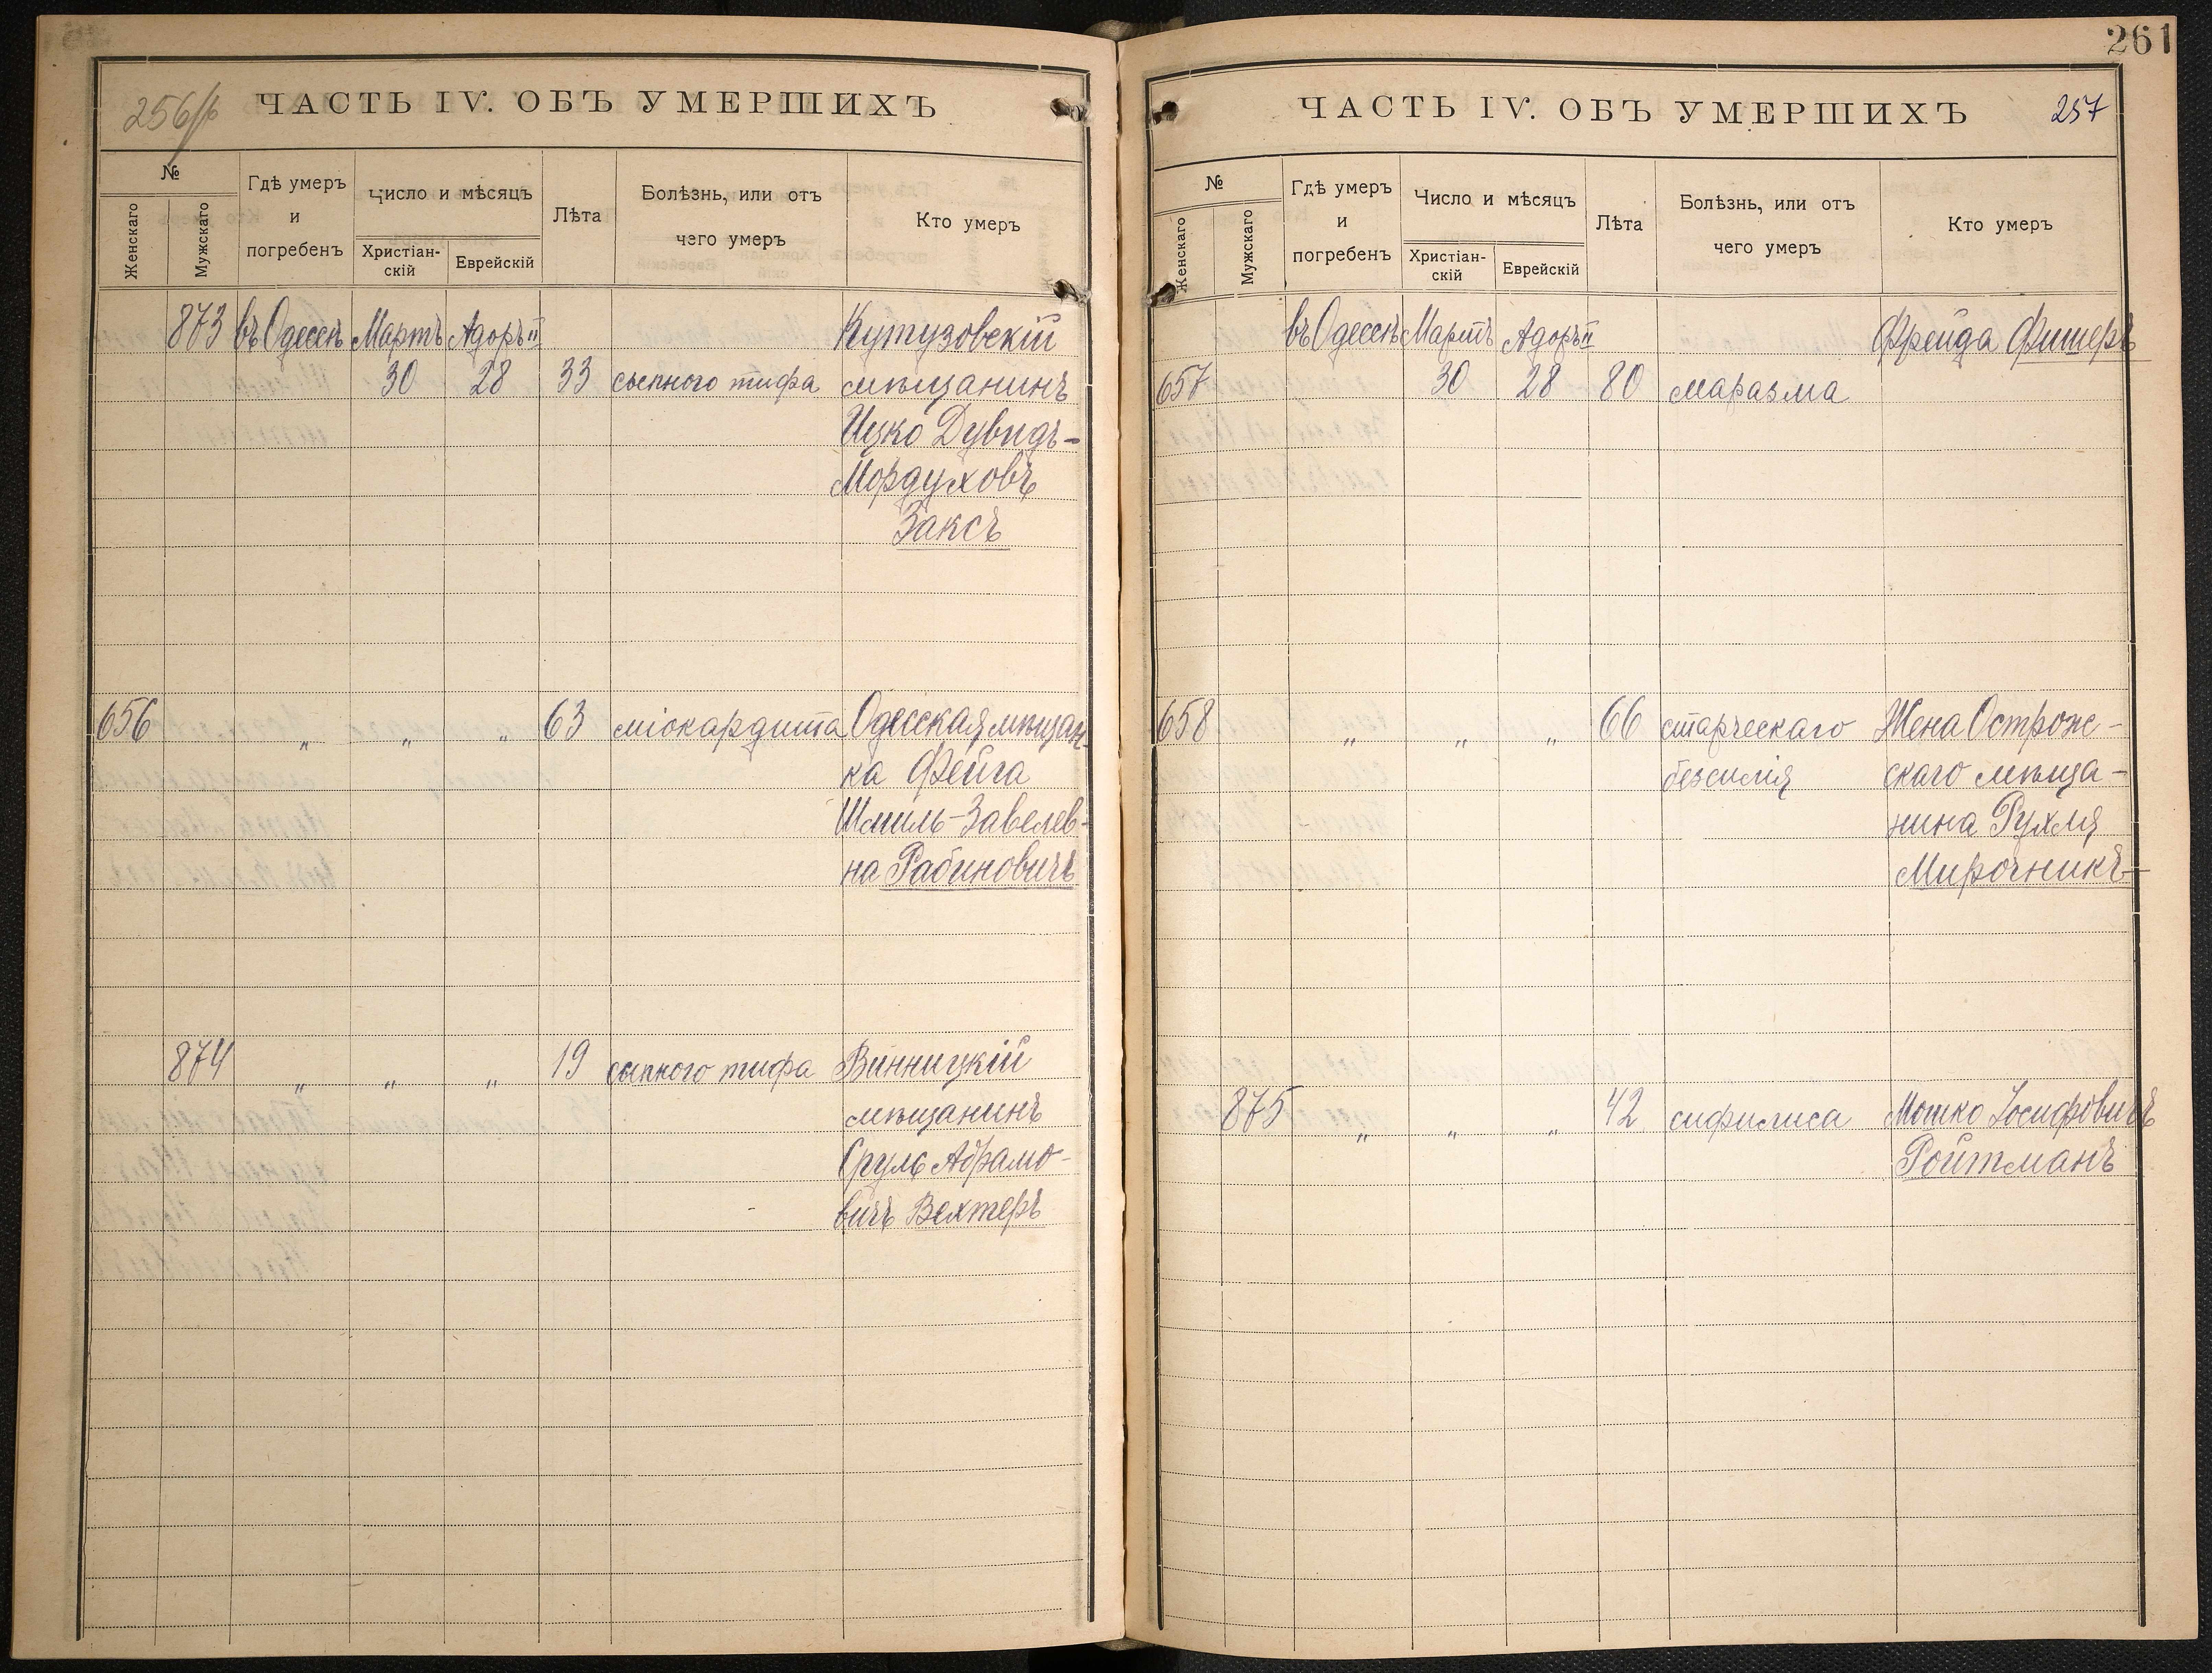 256/б
ЧАСТЬ IV. ОБЪ УМЕРШИХЪ
№
Женскаго
Мужскаго
Гдѣ умеръ
и
погребенъ
Число и мѣсяцъ
Христіан-
скій
Еврейскій
Лѣта
Болѣзнь, или отъ
чего умеръ
Кто умеръ
873 въ Одессѣ Мартъ Адоръ II Кутузовскій
30 28 33 сыпного тифа мѣщанинъ
Ицко Дувидъ-
Мордуховъ
Заксъ
656 „ „ „ 63 міокардита Одесская мѣщан-
ка Фейга
Шмиль-Завелев-
на Рабиновичъ
874 „ „ „ 19 сыпного тифа Винницкій
мѣщанинъ
Сруль Абрамо-
вичъ Вехтеръ
261
ЧАСТЬ IV. ОБЪ УМЕРШИХЪ
257
№
Женскаго
Мужскаго
Гдѣ умеръ
и
погребенъ
Число и мѣсяцъ
Христіан-
скій
Еврейскій
Лѣта
Болѣзнь, или отъ
чего умеръ
Кто умеръ
въ Одессѣ Мартъ Адоръ II Фрейда Фишеръ
657 30 28 80 маразма
658 „ „ „ 66 старческаго Жена Острож-
безсилія скаго мѣща-
нина Рухля
Мирочникъ
875 „ „ „ 42 сифилиса Мошко Іосифовичъ
Ройтманъ